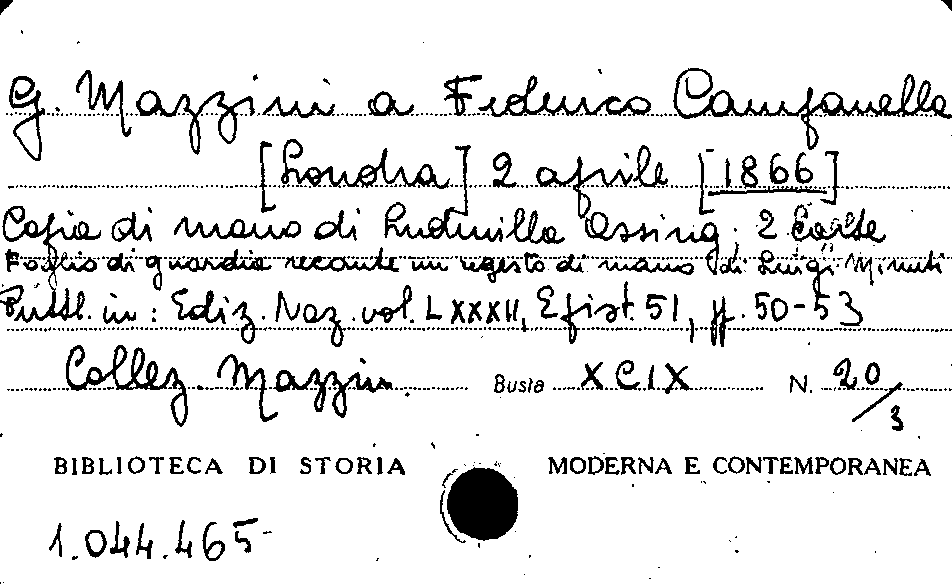 G. Mazzini a Federico Campanella
[Londra] 2 aprile [1866]
Copia di mano di Ludmilla Assing; 2 carte
Foglio di guardia recante un regesto di mano di Luigi Minuti
Pubbl. in: Ediz. Naz. vol. LXXXII, Epist. 51, pp. 50-53
Collez. Mazzini. Busta XCIX N. 20/3
BIBLIOTECA DI STORIA MODERNA E CONTEMPORANEA
1.044.465